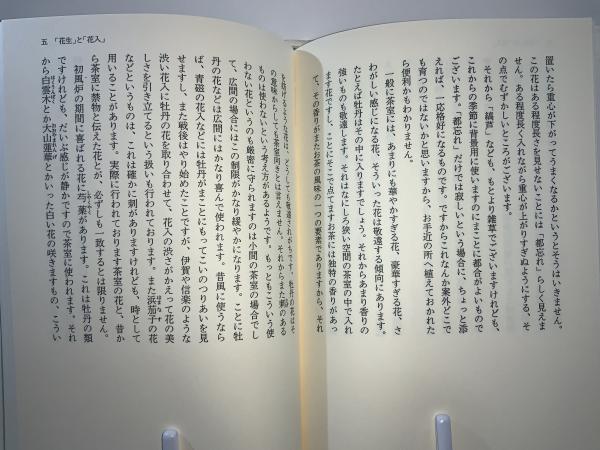 置いたら重心が下がってうまくなるかというとそうはいきません。
この花はある程度長さを見せないことには「都忘れ」らしく見えま
せん。ある程度長く入れながら重心が上がりすぎぬようにする、そ
の点でむずかしいところがございます。
それから「縞葦」なども、もとより雑草でございますけれども、
これからの季節に背景用に使いますのにまことに都合がよいもので
ございます。「都忘れ」だけでは寂しいという場合に、ちょっと添
えれば、一応格好になるものです。ですからこれなんか案外どこで
も育つのではないかと思いますから、お手近の所へ植えておかれた
ら便利かもわかりません。
一般に茶室には、あまりにも華やかすぎる花、豪華すぎる花、さ
わがしい感じになる花、そういった花は敬遠する傾向にあります。
たとえば牡丹はその中に入りますでしょう。それからあまり香りの
強いものも敬遠します。それはなにしろ狭い空間の茶室の中で入れ
ます花ですし、ことにそこで点てますお茶には独特の香りがあっ
て、その香りがまたお茶の風味の一つの要素でありますから、それ
を妨げるような花は、どうしても敬遠されがちです。牡丹の花はそ
の意味からしても茶室向きとは言えません。それからまた刺のある
ものは使わないという考え方があるようです。もっともこういう使
わない花というのも厳密に守られますのは小間の茶室の場合でし
て、広間の場合にはこの制限がかなり緩やかになります。ことに牡
丹の花などは広間にはかなり喜んで使われます。昔風に使うなら
ば、青磁の花入などには牡丹がまことにもってこいのつりあいを見
せますし、また戦後はやり始めたことですが、伊賀や信楽のような
渋い花入に牡丹の花を取り合わせて、花入の渋さがかえって花の美
しさを引き立てるという扱いも行われております。また浜茄子の花
などというものは、これは確かに刺がありますけれども、時として
用いることがあります。実際に行われております茶室の花と、昔か
ら茶室に禁物と伝えた花とが、必ずしも一致するとは限りません。
初風炉の期間に喜ばれる花に芍薬があります。これは牡丹の類
ですけれども、だいぶ感じが静かですので茶室に使われます。それ
から白雲木とか大山蓮華とかいった白い花の咲きますもの、こうい
五 「花生」と「花入」